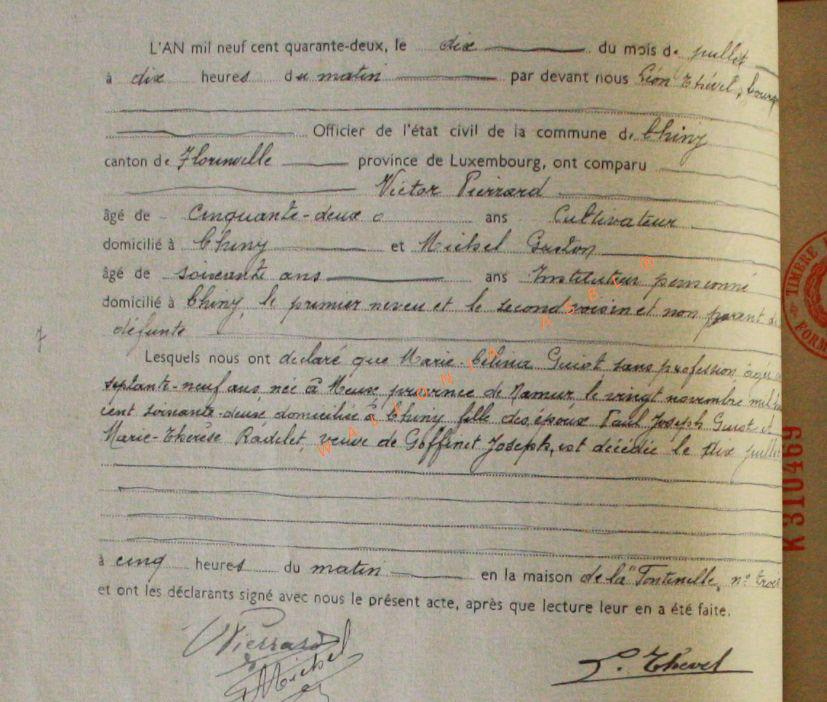 L'AN mil neuf cent quarante-deux, le dix du mois de juillet
à dix heures du matin par devant nous Léon Thével, bourg
Officier de l'état civil de la commune de Chiny
canton de Florenville province de Luxembourg, ont comparu
Victor Pierrard
âgé de cinquante-deux ans Cultivateur
domicilié à Chiny et Michel Gaston
âgé de soixante ans ans Instituteur pensionné
domicilié à Chiny, le premier neveu et le second voisin et non parent de
défunte
Lesquels nous ont déclaré que Marie-Célina Guiot sans profession âgée
septante-neuf ans, née à Meux province de Namur le vingt novembre mil
cent soixante-deux domiciliée à Chiny fille des époux Paul Joseph Guiot et
Marie-Thérèse Radelet, veuve de Goffinet Joseph, est décédée le dix juillet
à cinq heures du matin en la maison de la "Fontinelle, n° trois
et ont les déclarants signé avec nous le présent acte, après que lecture leur en a été faite.
VPierrard
GMichel
L. Thével
TIMBRE
FORM
K 310469